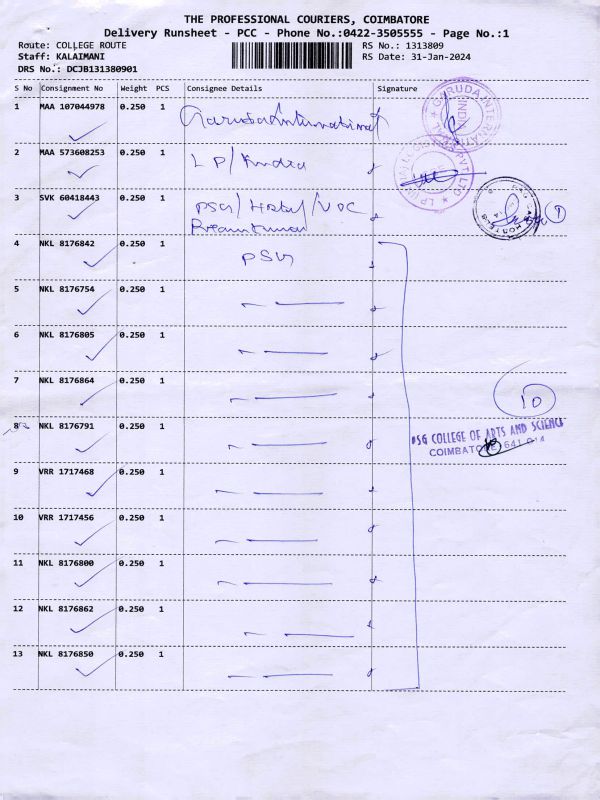 THE PROFESSIONAL COURIERS, COIMBATORE
Delivery Runsheet - PCC - Phone No.:0422-3505555 - Page No.:1
Route: COLLEGE ROUTE
RS No.: 1313809
Staff: KALAIMANI
RS Date: 31-Jan-2024
DRS No.: DCJB131380901
S No Consignment No Weight PCS Consignee Details Signature
1 MAA 107044978 0.250 1 Garuda International
GARUDA INTERNATIONAL
2 MAA 573608253 0.250 1 LP/Kndra
PVT LTD
3 SVK 60418443 0.250 1 PSG/Hostel/VOC
Premkumar
1
4 NKL 8176842 0.250 1 PSG
5 NKL 8176754 0.250 1
6 NKL 8176805 0.250 1
7 NKL 8176864 0.250 1
10
8 NKL 8176791 0.250 1
PSG COLLEGE OF ARTS AND SCIENCE
COIMBATORE 641 014
9 VRR 1717468 0.250 1
10 VRR 1717456 0.250 1
11 NKL 8176800 0.250 1
12 NKL 8176862 0.250 1
13 NKL 8176850 0.250 1